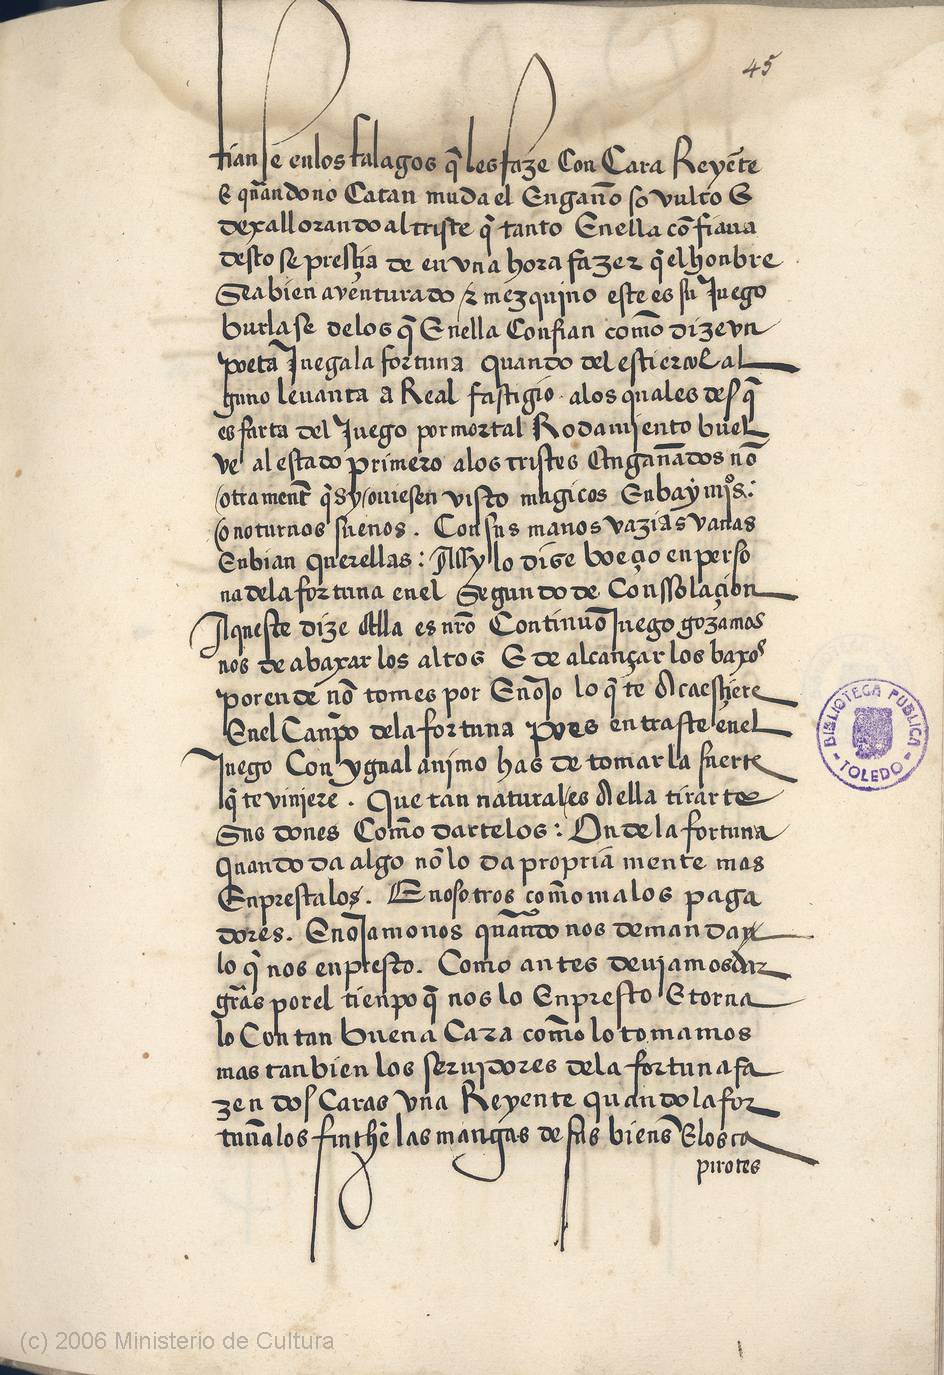 45
tianse en los falagos q̄ les faze Con Cara Reyēte
E quādo no Catan muda el Engaño so vulto E
dexa llorando al triste q̄ tanto En ella cōfiaua
desto se prescia de en vna hora fazer q̄ el honbre
Sea bien aventurado & mezquino este es su Juego
burlase de los q̄ En ella Confian como dize vn
poeta Juega la fortuna quando del estiercol al
guno leuanta a Real fastigio. a los quales desq̄
es farta del Juego por mortal Rodamjento buel
ve al estado primero a los tristes Engañados nō
otra ment̄ q̄ sy ouiesen visto magicos Enbaymjos:
o noturnos sueños. Con sus manos vazias vanas
Enbian querellas: Assy lo dise boeçio en perso
na de la fortuna en el Segundo de Conssolaçion
Aqueste dize Ella es nr̄o Continuo Juego gozamos
nos de abaxar los altos E de alcançar los baxos
por ende nō tomes por Enojo lo q̄ te Acaesçiere
En el Canpo de la fortuna pues entraste en el
Juego Con ygual animo has de tomar la suerte
q̄ te vinjere. Que tan natural es A ella tirarte
Sus dones Como dartelos: Onde la fortuna
quando da algo nō lo da propria mente mas
Enprestalos. E nosotros como malos paga
dores. Enojamonos quando nos demandan
lo q̄ nos enpresto. Como antes deujamos dar
gr̄as por el tienpo q̄ nos lo Enpresto E torna
lo Con tan buena Cara como lo tomamos
mas tanbien los serujdores de la fortuna fa
zen dos Caras vna Reyente quando la for
tuna los finche las mangas de sus bienes E los ca
pirotes
BIBLIOTECA PUBLICA
- TOLEDO -
(c) 2006 Ministerio de Cultura